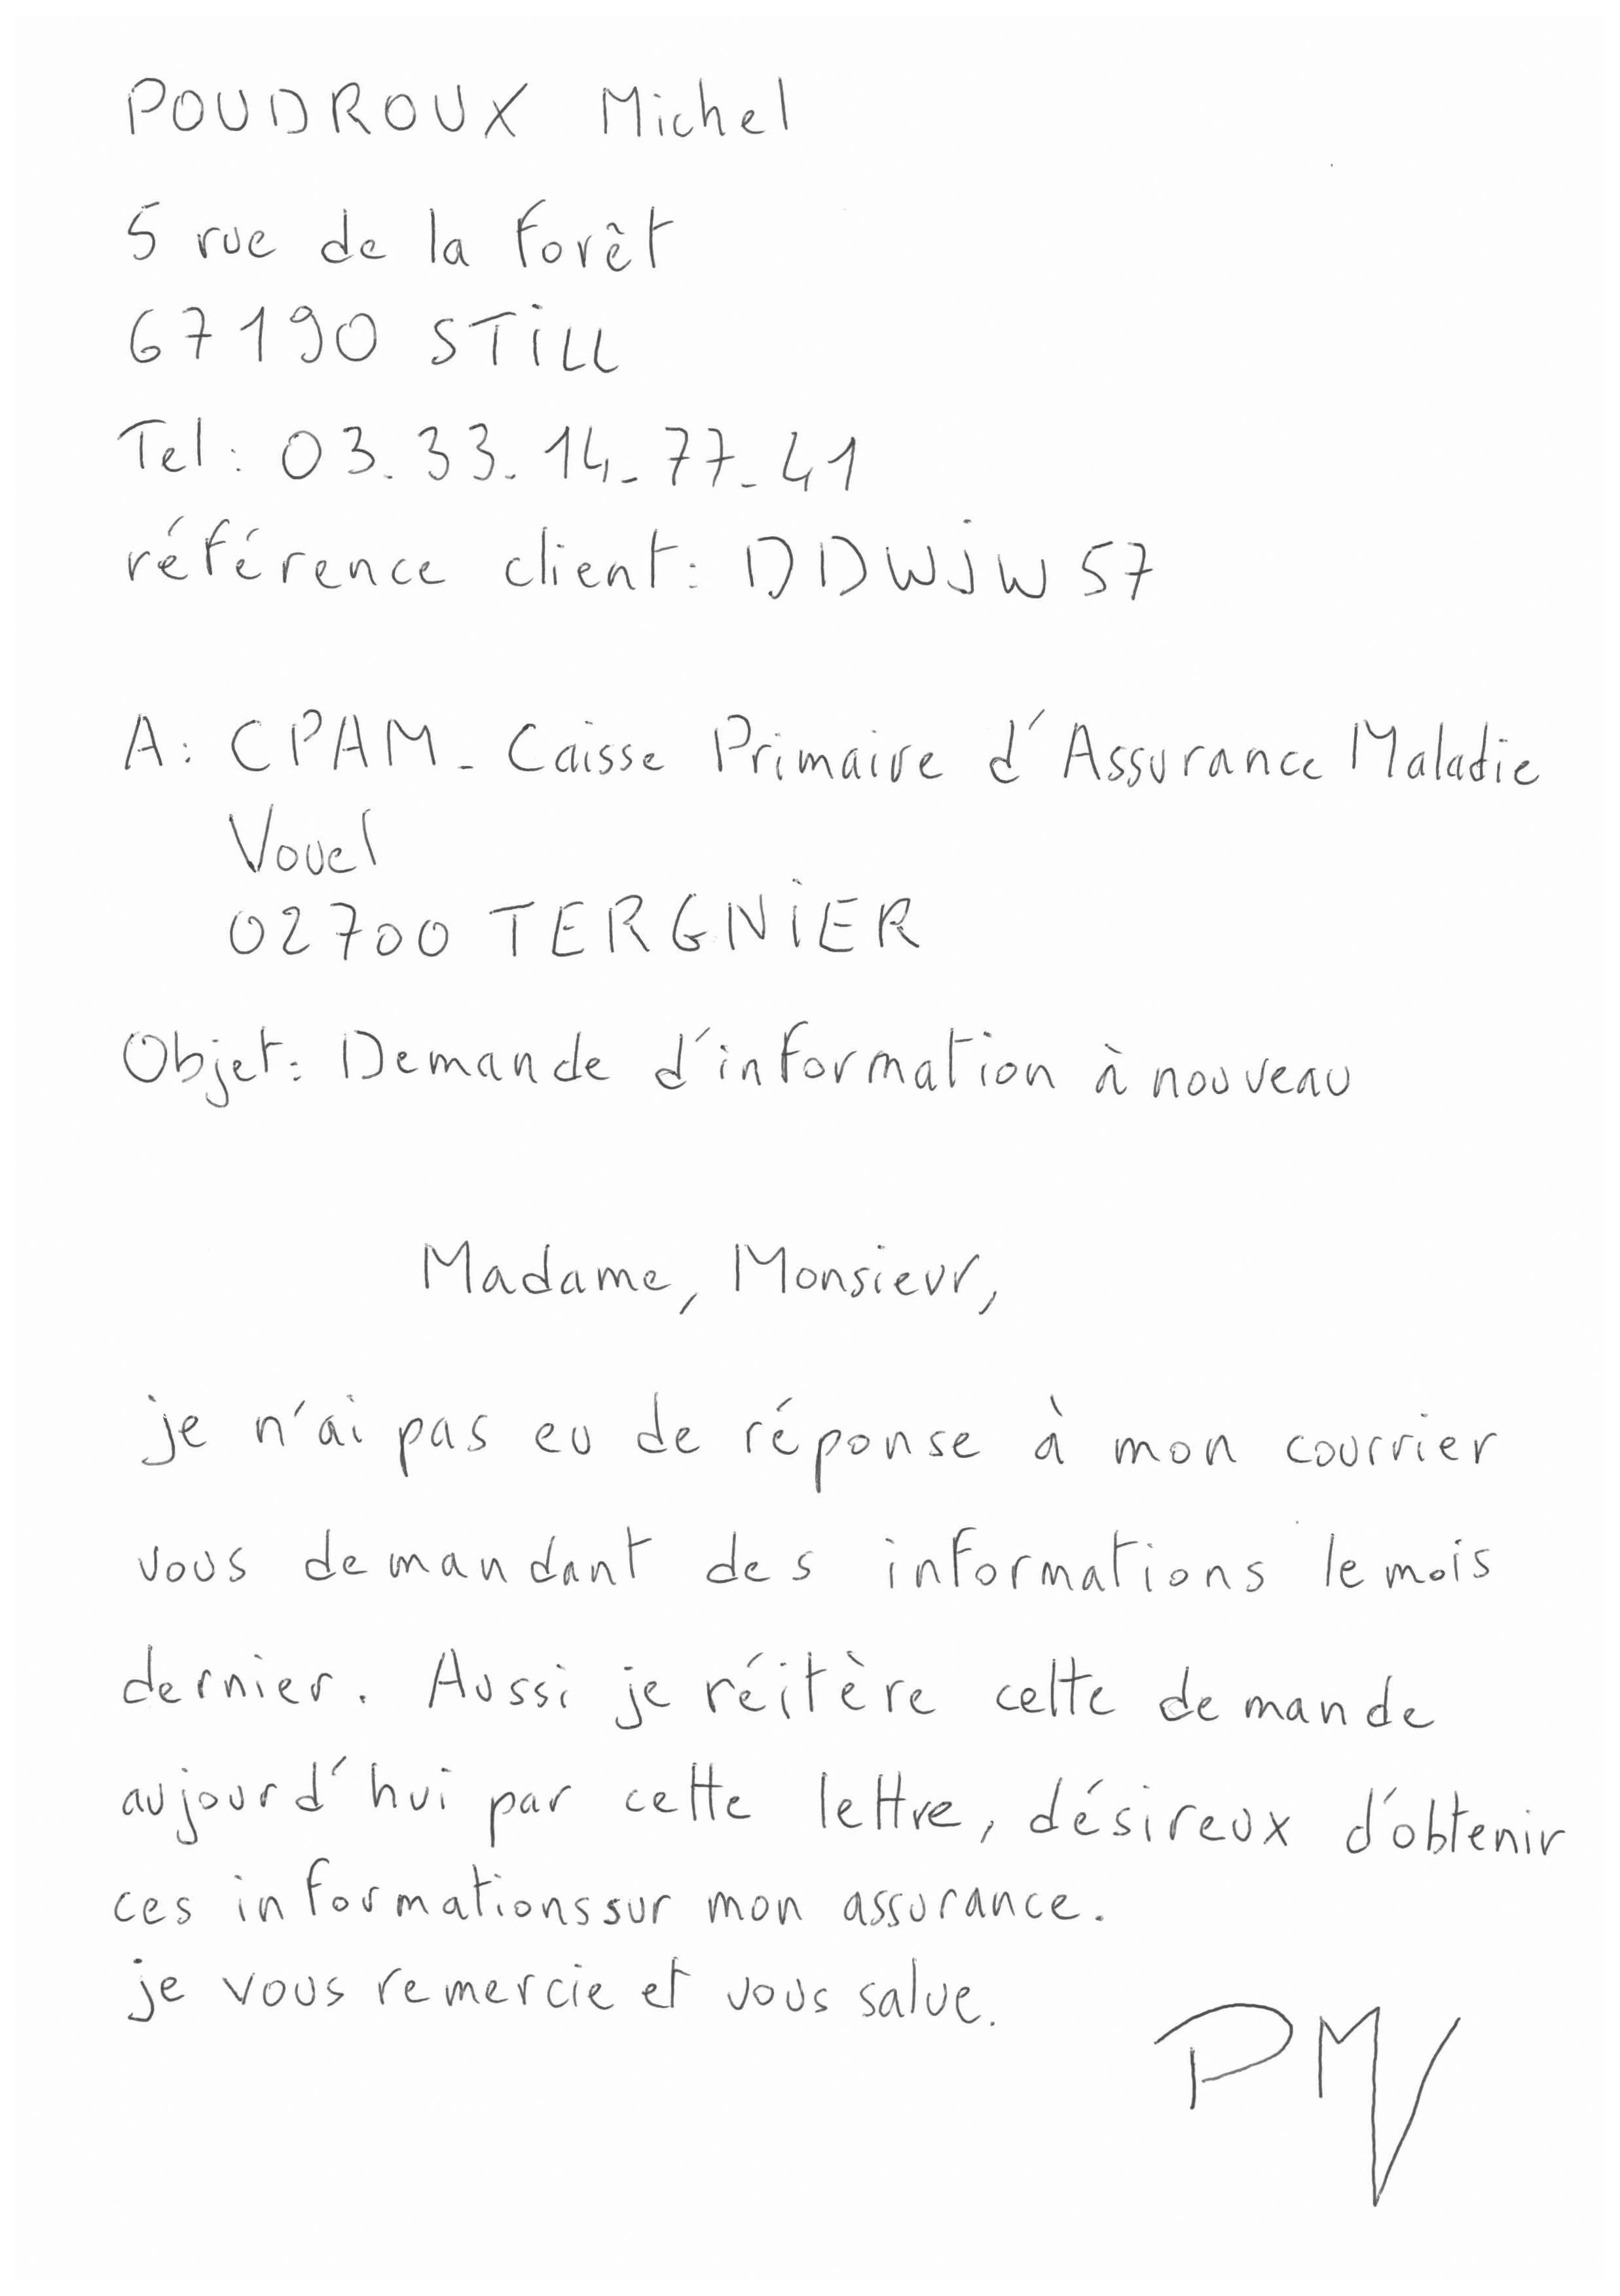 POUDROUX Michel
5 rue de la forêt
67190 STiLL
Tel: 03.33.14.77.41
référence client: DDWJW57
A: CPAM - Caisse Primaire d'Assurance Maladie
Vouel
02700 TERGNiER
Objet: Demande d'information à nouveau
Madame, Monsieur,
je n'ai pas eu de réponse à mon courrier
vous demandant des informations le mois
dernier. Aussi je réitère cette demande
aujourd'hui par cette lettre, désireux d'obtenir
ces informations sur mon assurance.
je vous remercie et vous salue.
PM